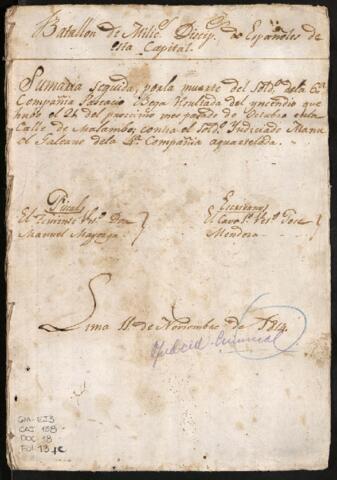 Batallon de Milic.s Discip.s de Españoles de
esta Capital.
Sumaria seguida, por la muerte del Sold.o dela 6.a
Compañia Pascacio Resultada del yncendio que
hubo el 24 del proximo mes pasado de Octubre en la
Calle de Malambo; contra el Sold.o Yndiciado Manu
el Salcano dela 4.a Compañia aquartelada.
Fiscal
El Teniente Vet.o Dn
Manuel Mayorga
Escrivano
El Cavo 1.o Vet.o Jose
Mendoza
Lima 11 de Noviembre de 1814.
Criminal
GM-EJ3
CAJ 138
DOC 18
Fol 13